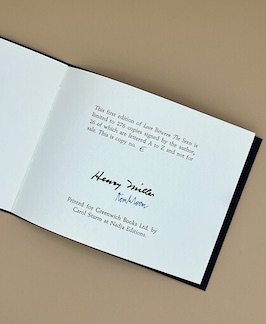 This first edition of Love Between The Sexes is
limited to 276 copies signed by the author,
26 of which are lettered A to Z and not for
sale. This is copy no. E
Henry Miller
Tom Moore
Printed for Greenwich Books Ltd. by
Carol Sturm at Nadja Editions